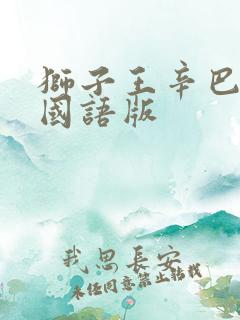 獅子王辛巴
國語版
我思長安
未经同意禁止转载